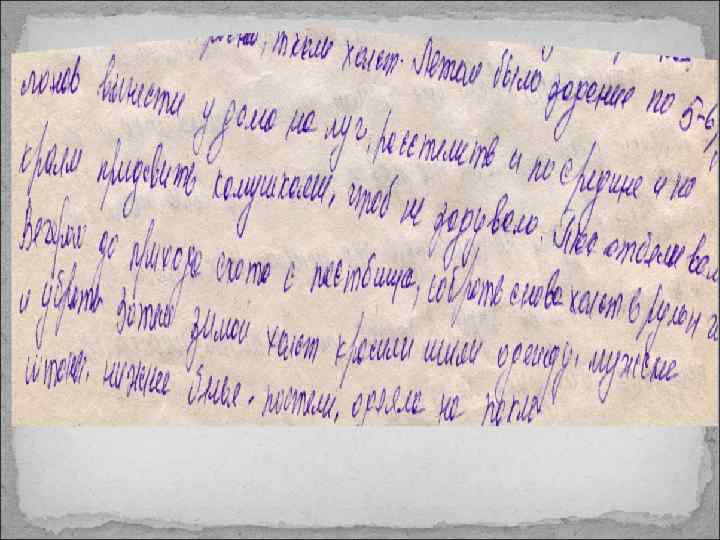 ткали холст. Летом было задание по 5-6
лонов вынести у дома на луг, расстелить и по средине и по
краям придавить камушками, чтоб не задувало. Так отбеливали
Вечером до прихода скота с пастбища, собрать снова холст в рулон
и убрать. Затем зимой холст красили шили одежду. мужские
штаны. нижнее белье. постели, одеяла на